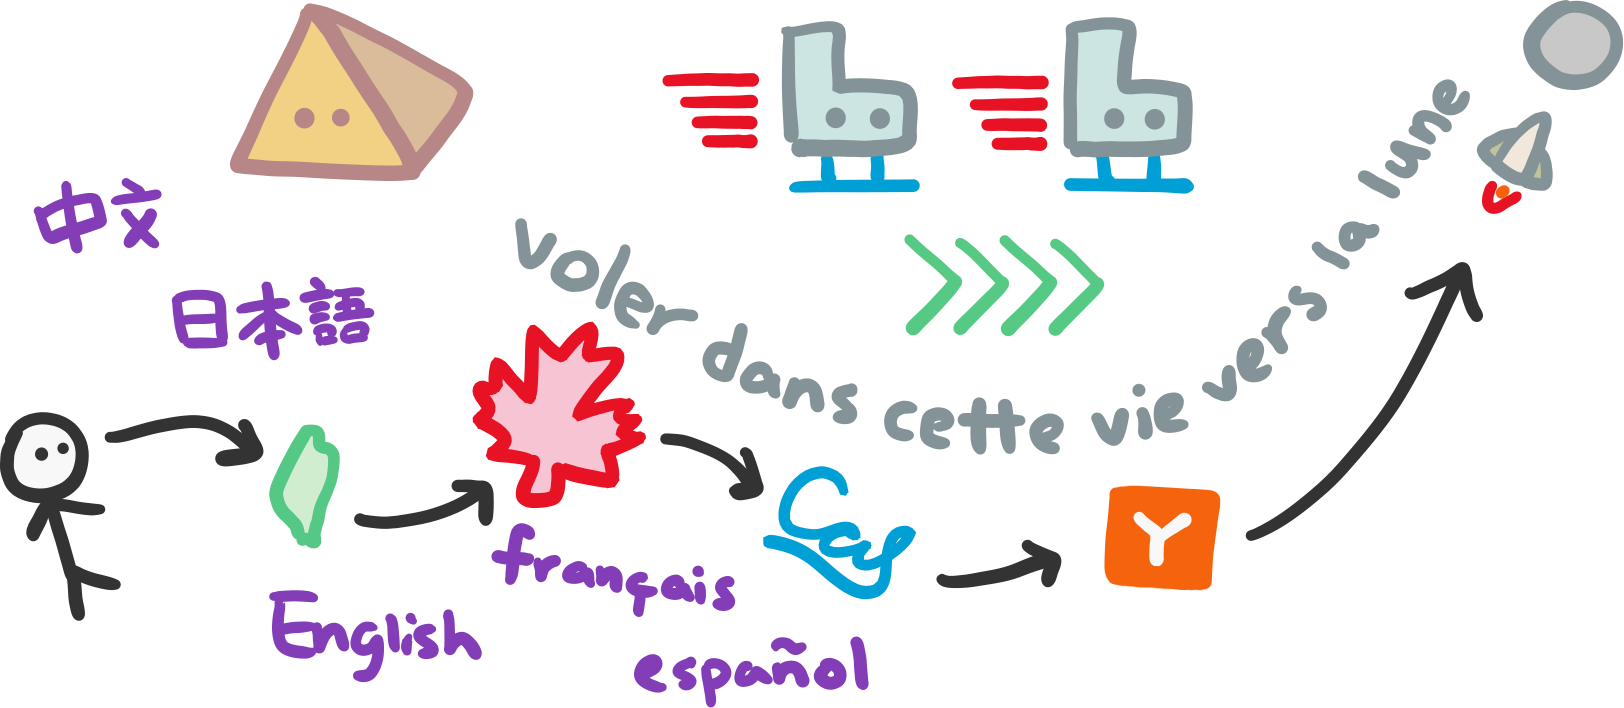 中文
日本語
voler dans cette vie vers la lune
English
français
español
Cal
Y